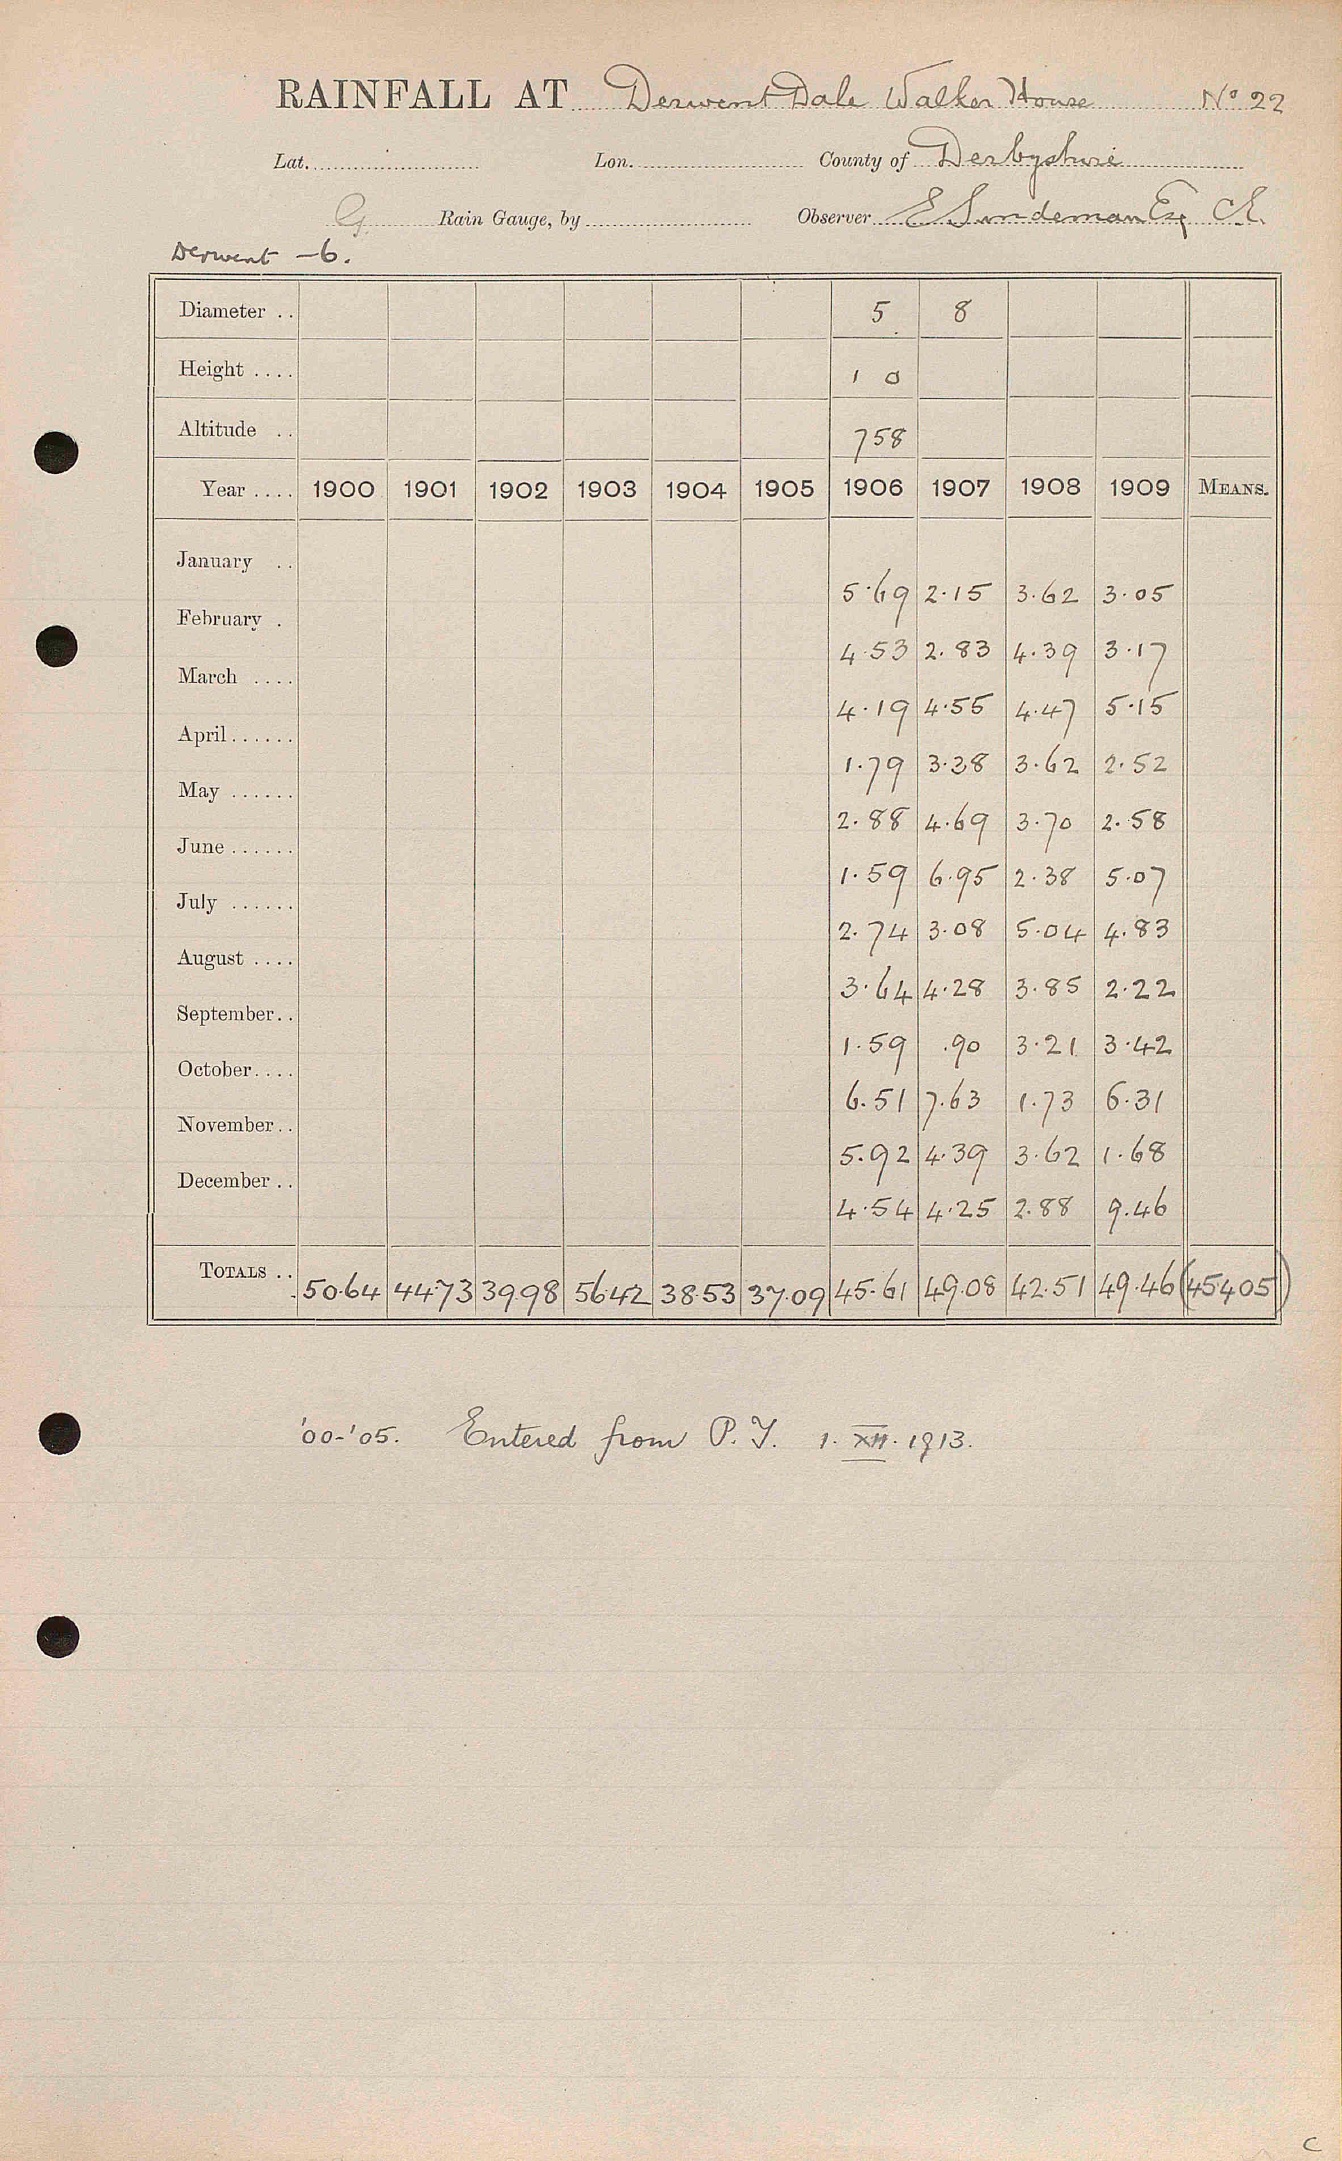 RAINFALL AT Derwent Dale Walker House No 22
Lat. Lon. County of Derbyshire
G. Rain Gauge, by Observer E Sandeman Esq C.E.
Derwent –6.
Diameter .. 5 8
Height .... 1 0
Altitude .. 758
Year .... 1900 1901 1902 1903 1904 1905 1906 1907 1908 1909 MEANS.
January .. 5.69 2.15 3.62 3.05
February . 4.53 2.83 4.39 3.17
March .... 4.19 4.55 4.47 5.15
April...... 1.79 3.38 3.62 2.52
May ...... 2.88 4.69 3.70 2.58
June ...... 1.59 6.95 2.38 5.07
July ...... 2.74 3.08 5.04 4.83
August .... 3.64 4.28 3.85 2.22
September.. 1.59 .90 3.21 3.42
October.... 6.51 7.63 1.73 6.31
November.. 5.92 4.39 3.62 1.68
December .. 4.54 4.25 2.88 9.46
TOTALS .. 50.64 44.73 39.98 56.42 38.53 37.09 45.61 49.08 42.51 49.46 (454.05)
'00-'05. Entered from P.Y. 1. XII. 1913.
C